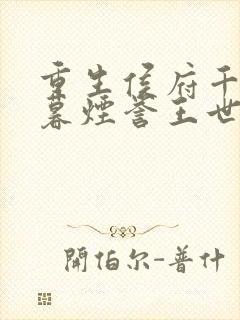 重生侯府千
暮煙誉王世
開伯尔-普什